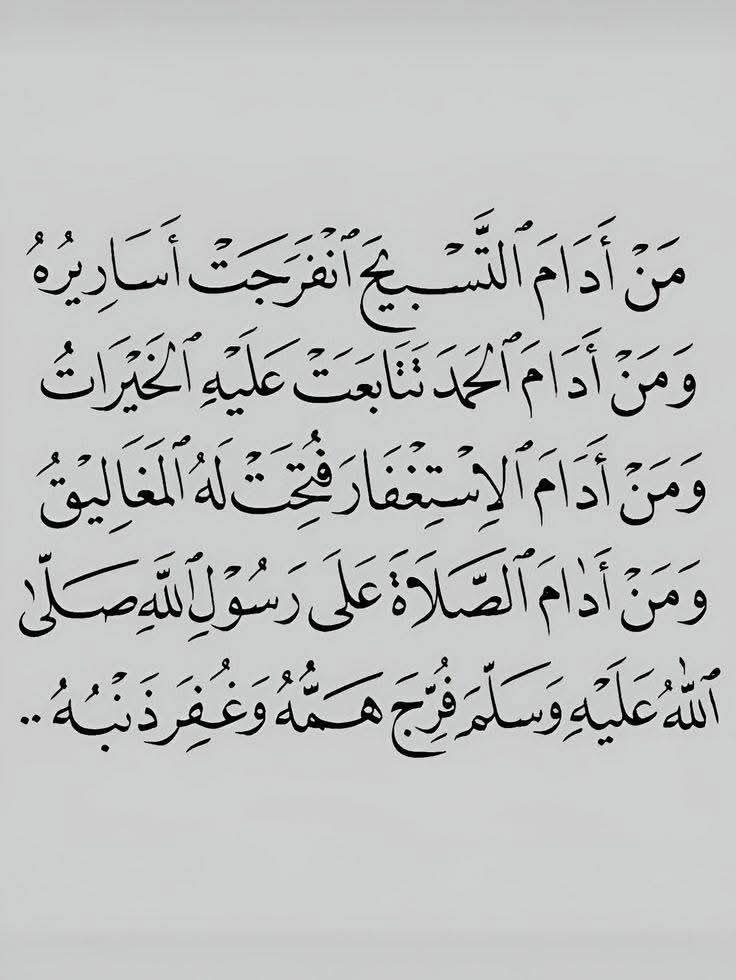 مَنْ أَدَامَ ٱلتَّسْبِيحَ ٱنْفَرَجَتْ أَسَارِيرُهُ
وَمَنْ أَدَامَ ٱلحَمدَ تَتَابَعَتْ عَلَيْهِ ٱلخَيْرَاتُ
وَمَنْ أَدَامَ ٱلاِسْتِغْفَارَ فُتِحَتْ لَهُ ٱلمَغَالِيْقُ
وَمَنْ أَدٰامَ ٱلصَّلَاةَ عَلَى رَسُوْلِ ٱللَّهِ صَلّىٰ
ٱللّٰهُ عَلَيْهِ وَسَلَّمَ فُرِّجَ هَمُّهُ وَغُفِرَ ذَنْبُهُ ..